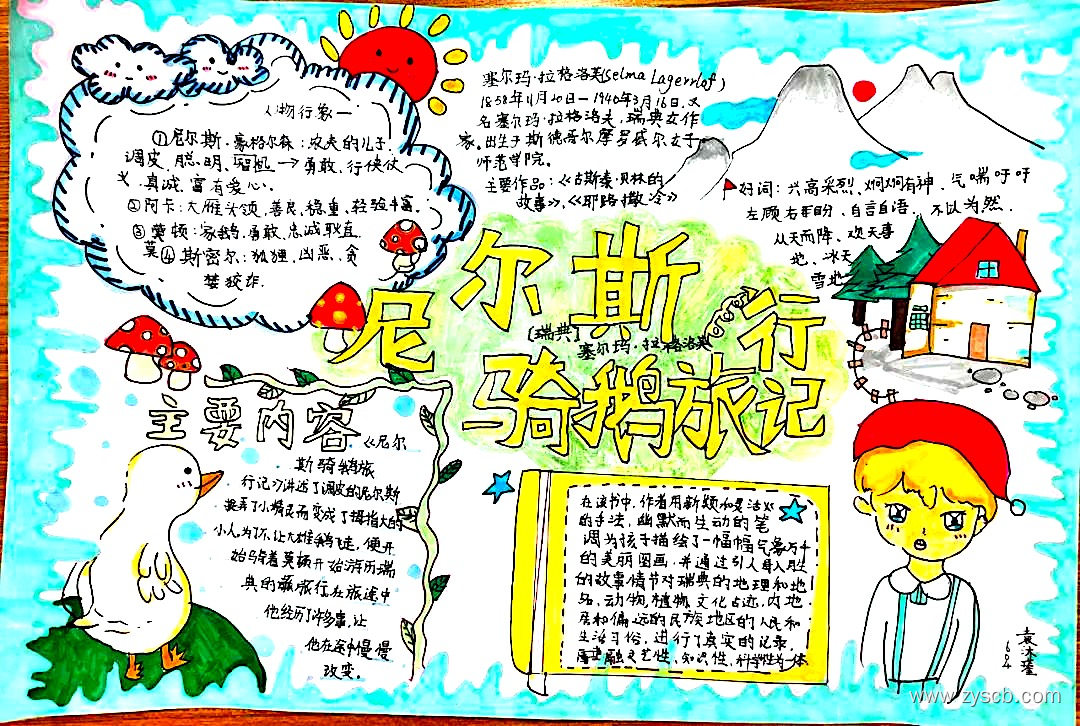 人物行象一
①尼尔斯·豪格尔森：农夫的儿子.
调皮、聪明、→勇敢、行侠仗
义、真诚、富有爱心.
②阿卡：大雁头领，善良、稳重、经验丰富.
③莫顿：家鹅，勇敢、忠诚耿直.
④斯密尔：狐狸，凶恶、贪
婪狡诈.
塞尔玛·拉格洛芙(Selma Lagerrlof)
1858年11月20日—1940年3月16日，又
名塞尔玛·拉格洛夫，瑞典女作
家，出生于斯德哥尔摩罗威尔女子
师范学院。
主要作品：《古斯泰·贝林的
故事》，《耶路撒冷》
好词：兴高采烈、炯炯有神、气喘吁吁
左顾右盼、自言自语、不以为然.
从天而降、欢天喜
地、冰天
雪地
尼尔斯行
[瑞典]
塞尔玛·拉格洛芙
骑鹅旅记
主要内容
《尼尔
斯骑鹅旅
行记》讲述了调皮的尼尔斯
捉弄了小精灵而变成了拇指大的
小人，为了不让大雄鹅飞走，便开
始骑着莫顿开始游历瑞
典的旅行，在旅途中
他经历了许多事，让
他在途中慢慢
改变。
在该书中，作者用新颖和灵活
的手法，幽默而生动的笔
调为孩子描绘了一幅幅气象万千
的美丽图画，并通过引人入胜
的故事情节对瑞典的地理和地
貌，动物，植物，文化古迹，内地
居和偏远的民族地区的人民和
生活习俗，进行了真实的记录，
融文艺性，知识性，科学性为一体
袁沐瑾
www.zyscb.com